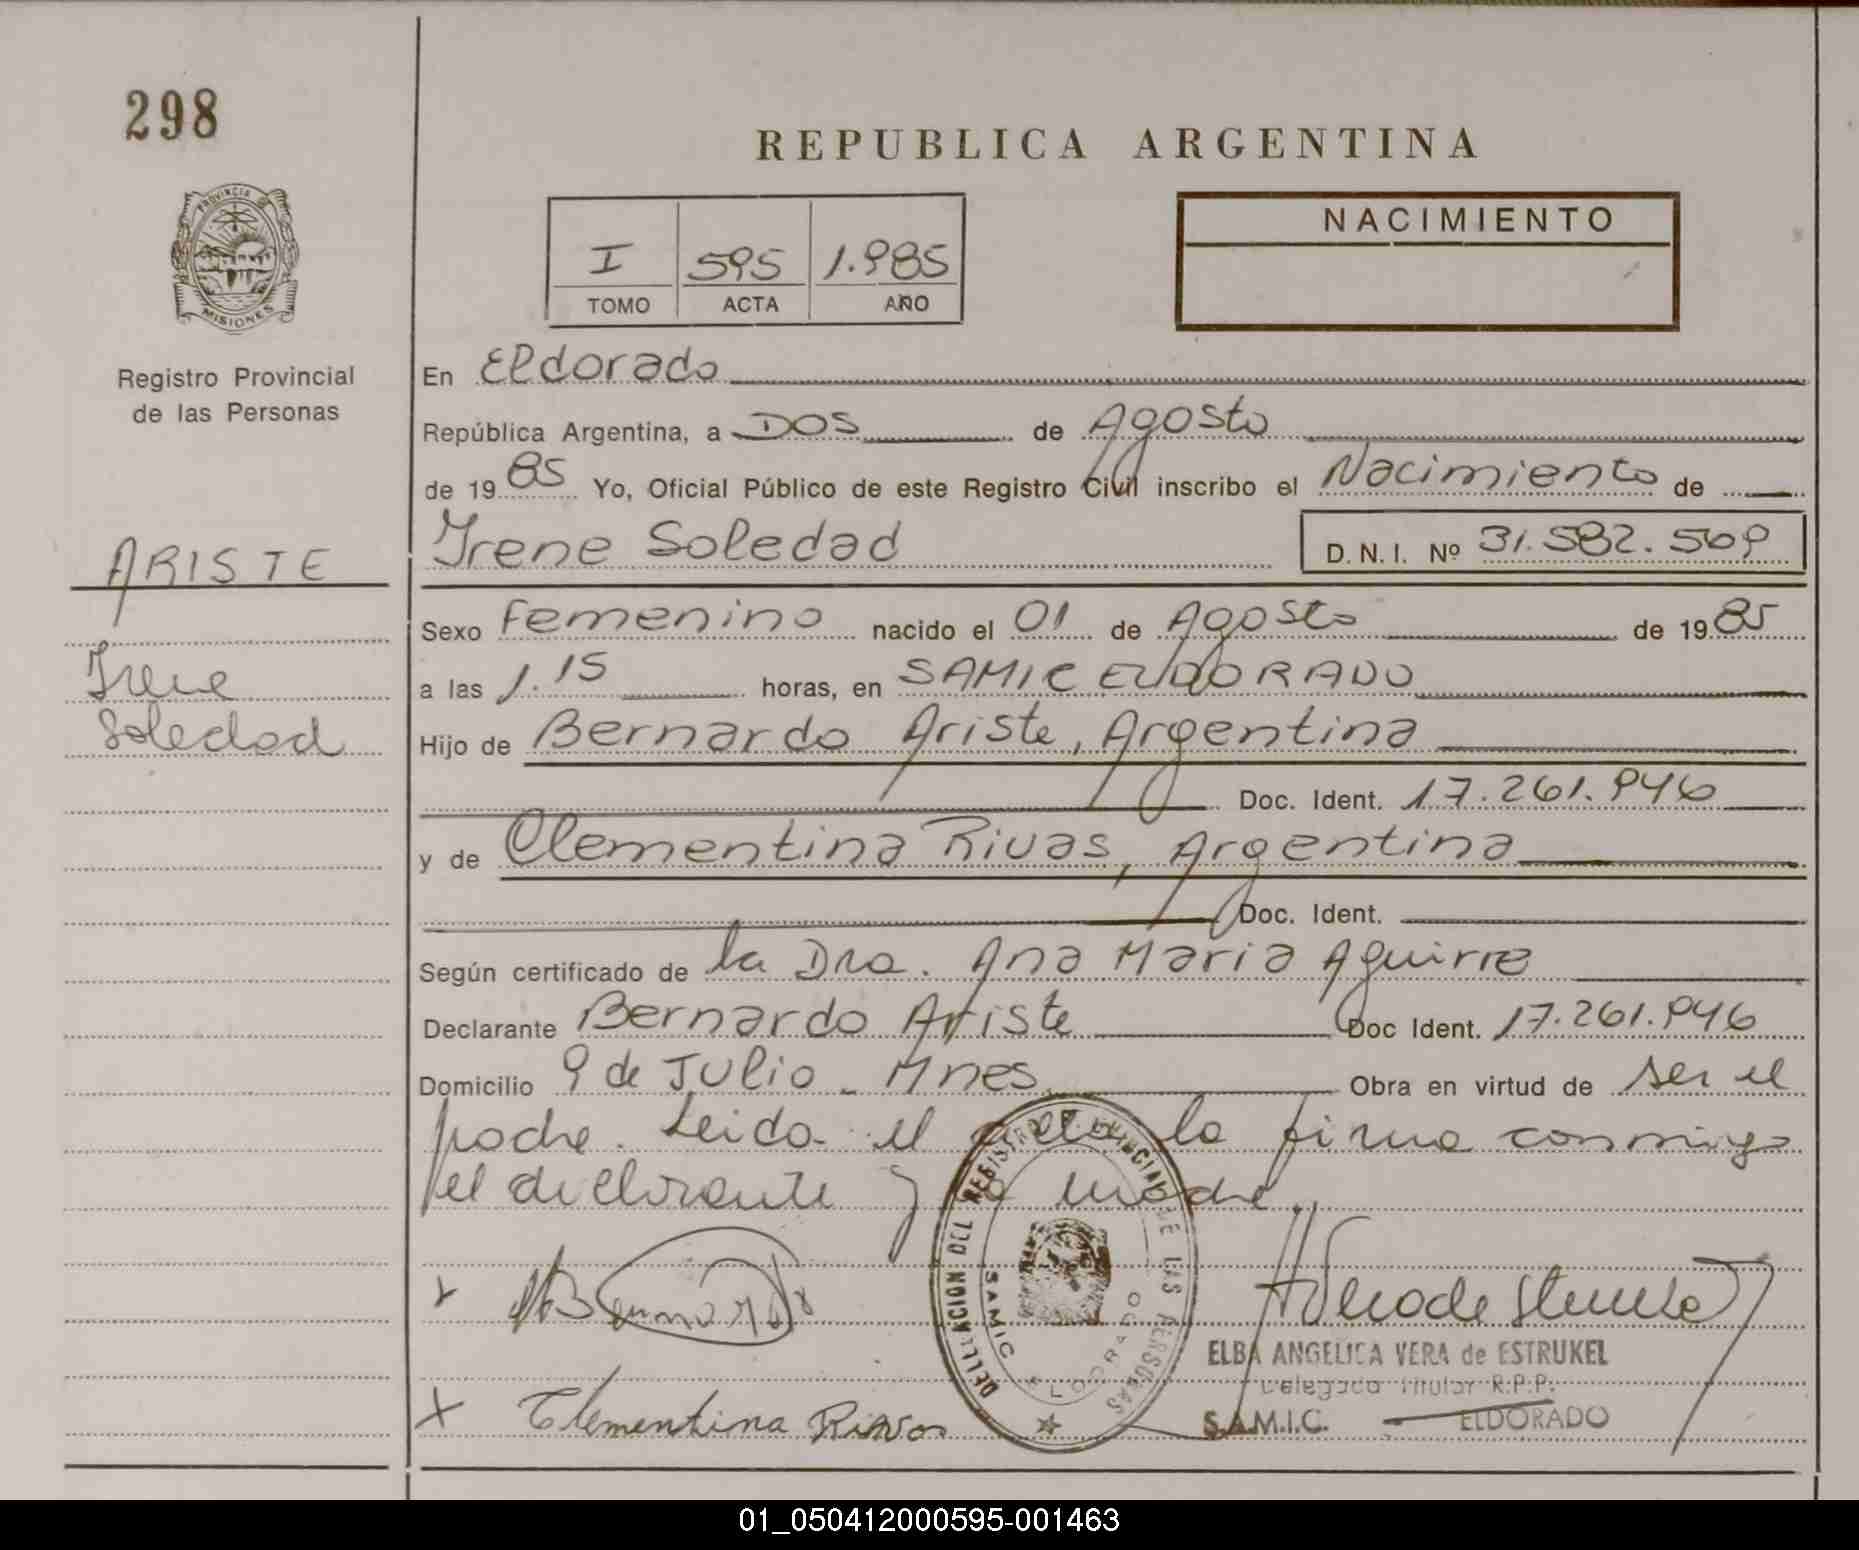 298
REPUBLICA ARGENTINA
PROVINCIA DE
MISIONES
Registro Provincial
de las Personas
I 595 1.985
TOMO ACTA AÑO
NACIMIENTO
En Eldorado
República Argentina, a DOS de Agosto
de 1985 Yo, Oficial Público de este Registro Civil inscribo el Nacimiento de
Irene Soledad D.N.I. Nº 31.582.509
ARISTE
Irene
Soledad
Sexo Femenino nacido el 01 de Agosto de 1985
a las 1.15 horas, en SAMIC ELDORADO
Hijo de Bernardo Ariste, Argentina
Doc. Ident. 17.261.946
y de Clementina Rivas, Argentina
Doc. Ident.
Según certificado de la Dra. Ana Maria Aguirre
Declarante Bernardo Ariste Doc Ident. 17.261.946
Domicilio 9 de Julio - Mnes. Obra en virtud de ser el
padre. Leida el acta la firma conmigo
el declarante y la madre.
DELEGACION DEL REGISTRO PROVINCIAL DE LAS PERSONAS
SAMIC ELDORADO
x
ELBA ANGELICA VERA de ESTRUKEL
Delegada Titular R.P.P.
S.A.M.I.C. ELDORADO
x Clementina Rivas
01_050412000595-001463